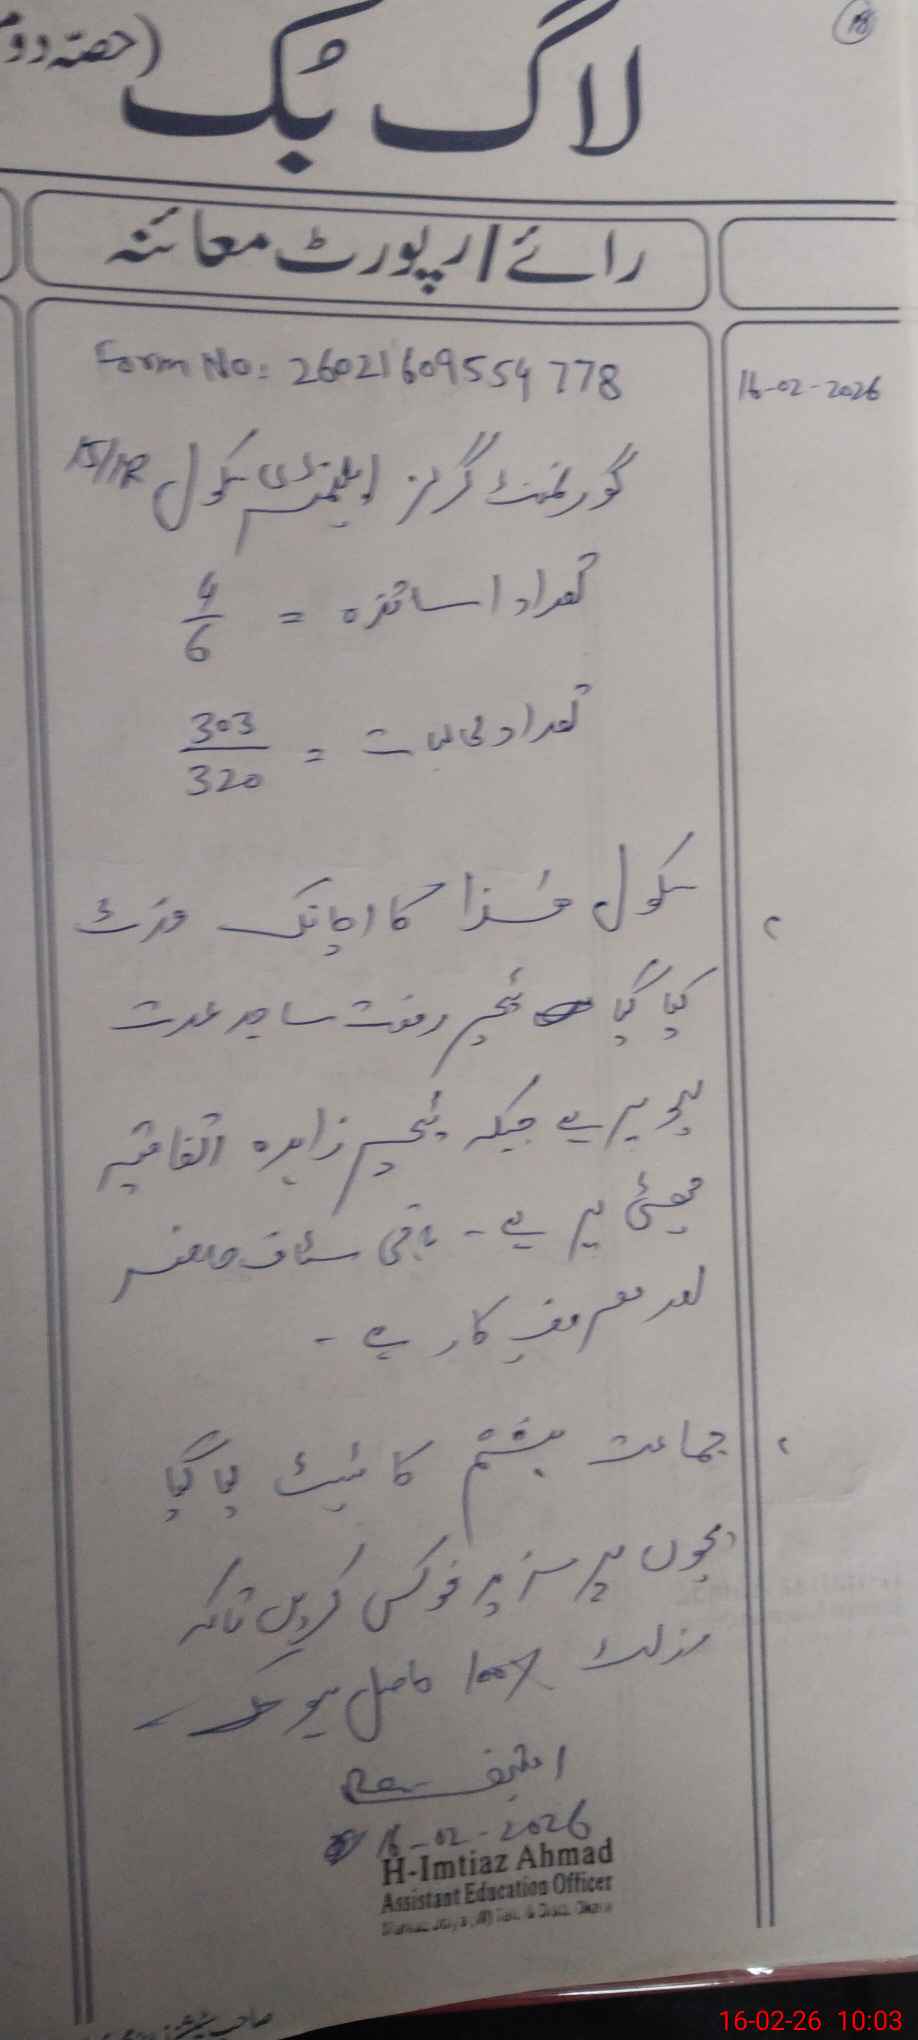 18
لاگ بُک (حصّہ دوم
رائے/رپورٹ معائنہ
16-02-2026
Form No: 26021609554778
گورنمنٹ گرلز ایلیمنٹری سکول 15/1R
تعداد اساتذہ = 4/6
تعداد طالبات = 303/320
سکول ھٰذا کا اچانک وزٹ
کیا گیا ٹیچر رفعت ساجد عدت
پیریڈ پر ہے جبکہ ٹیچر زاہدہ اتفاقیہ
چھٹی پر ہے۔ باقی سٹاف حاضر
اور مصروفِ کار ہے۔
جماعت ہشتم کا ٹیسٹ لیا گیا
بچوں پر فوکس کریں تاکہ
رزلٹ 100% حاصل ہو سکے
16-02-2026
H-Imtiaz Ahmad
Assistant Education Officer
16-02-26 10:03